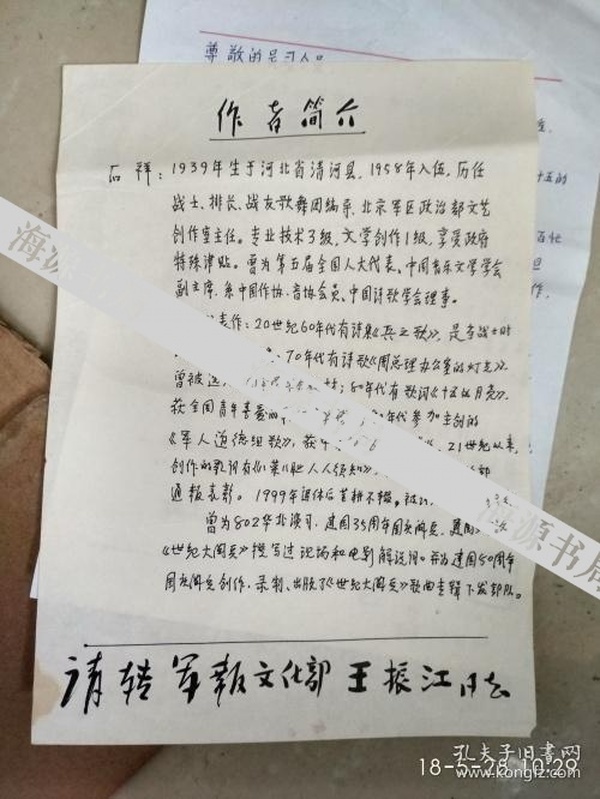 尊敬的
作者简介
石祥：1939年生于河北省清河县，1958年入伍。历任
战士、排长、战友歌舞团编导、北京军区政治部文艺
创作室主任。专业技术3级，文学创作1级，享受政府
特殊津贴。曾为第五届全国人大代表、中国音乐文学学会
副主席，系中国作协、音协会员、中国诗歌学会理事。
表作：20世纪60年代有诗集《兵之歌》，是当战士时
70年代有诗歌《周总理办公室的灯光》，
曾被选
80年代有歌词《十五的月亮》，
获全国青年喜爱的
年代参加主创的
《军人道德组歌》，获
21世纪以来，
创作的歌词有《八荣八耻人人须知》，
部
通报表彰。1999年退休后笔耕不辍。被
曾为802华北演习、建国35周年国庆阅兵、
《世纪大阅兵》撰写过现场和电影解说词。并为建国50周年
国庆阅兵创作、录制、出版了《世纪大阅兵》歌曲专辑下发部队。
请转军报文化部王振江同志
海源书局
源书局
孔夫子旧书网
www.kongfz.com
18-5-28 10:29